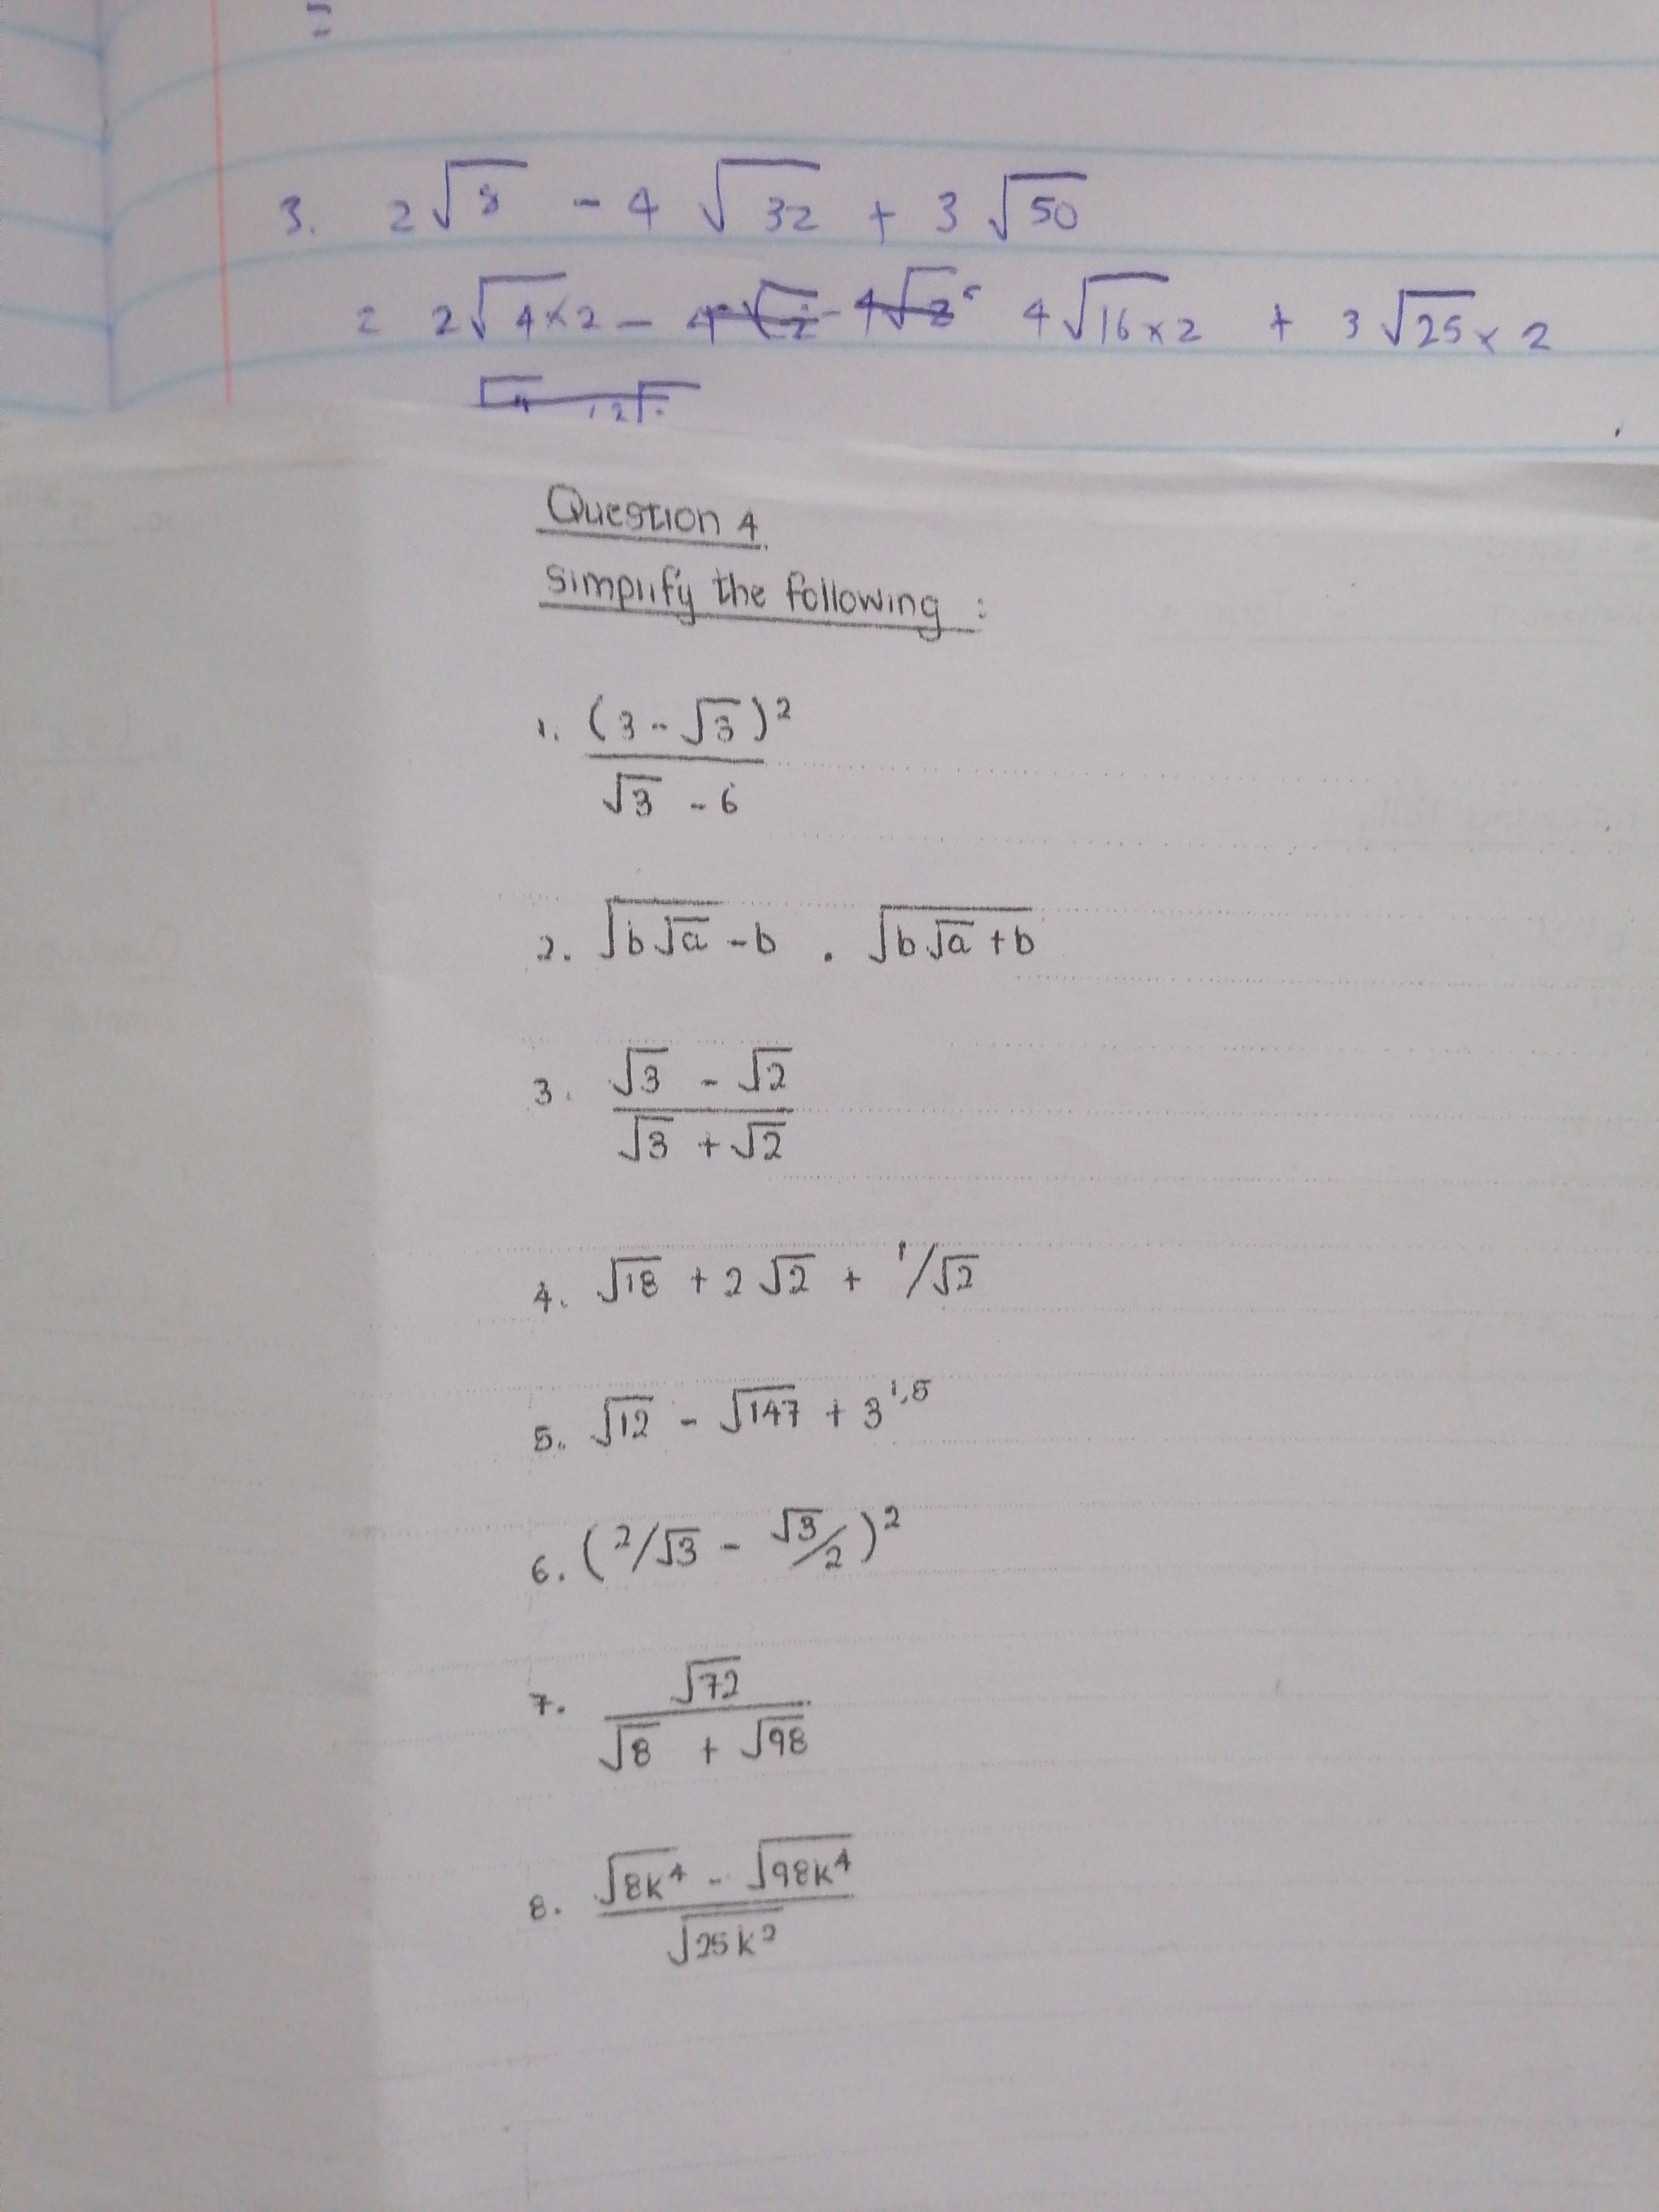 =
3. 2√8 - 4 √32 + 3 √50
= 2√4×2 - 4√16×2 + 3√25×2
Question 4.
Simplify the following :
1. (3 - √3)²
√3 - 6
2. √(b√a - b) . √(b√a + b)
3. √3 - √2
√3 + √2
4. √18 + 2√2 + 1/√2
5. √12 - √147 + 3^1,5
6. (2/√3 - √3/2)²
7. √72
√8 + √98
8. √8k⁴ - √98k⁴
√25k²